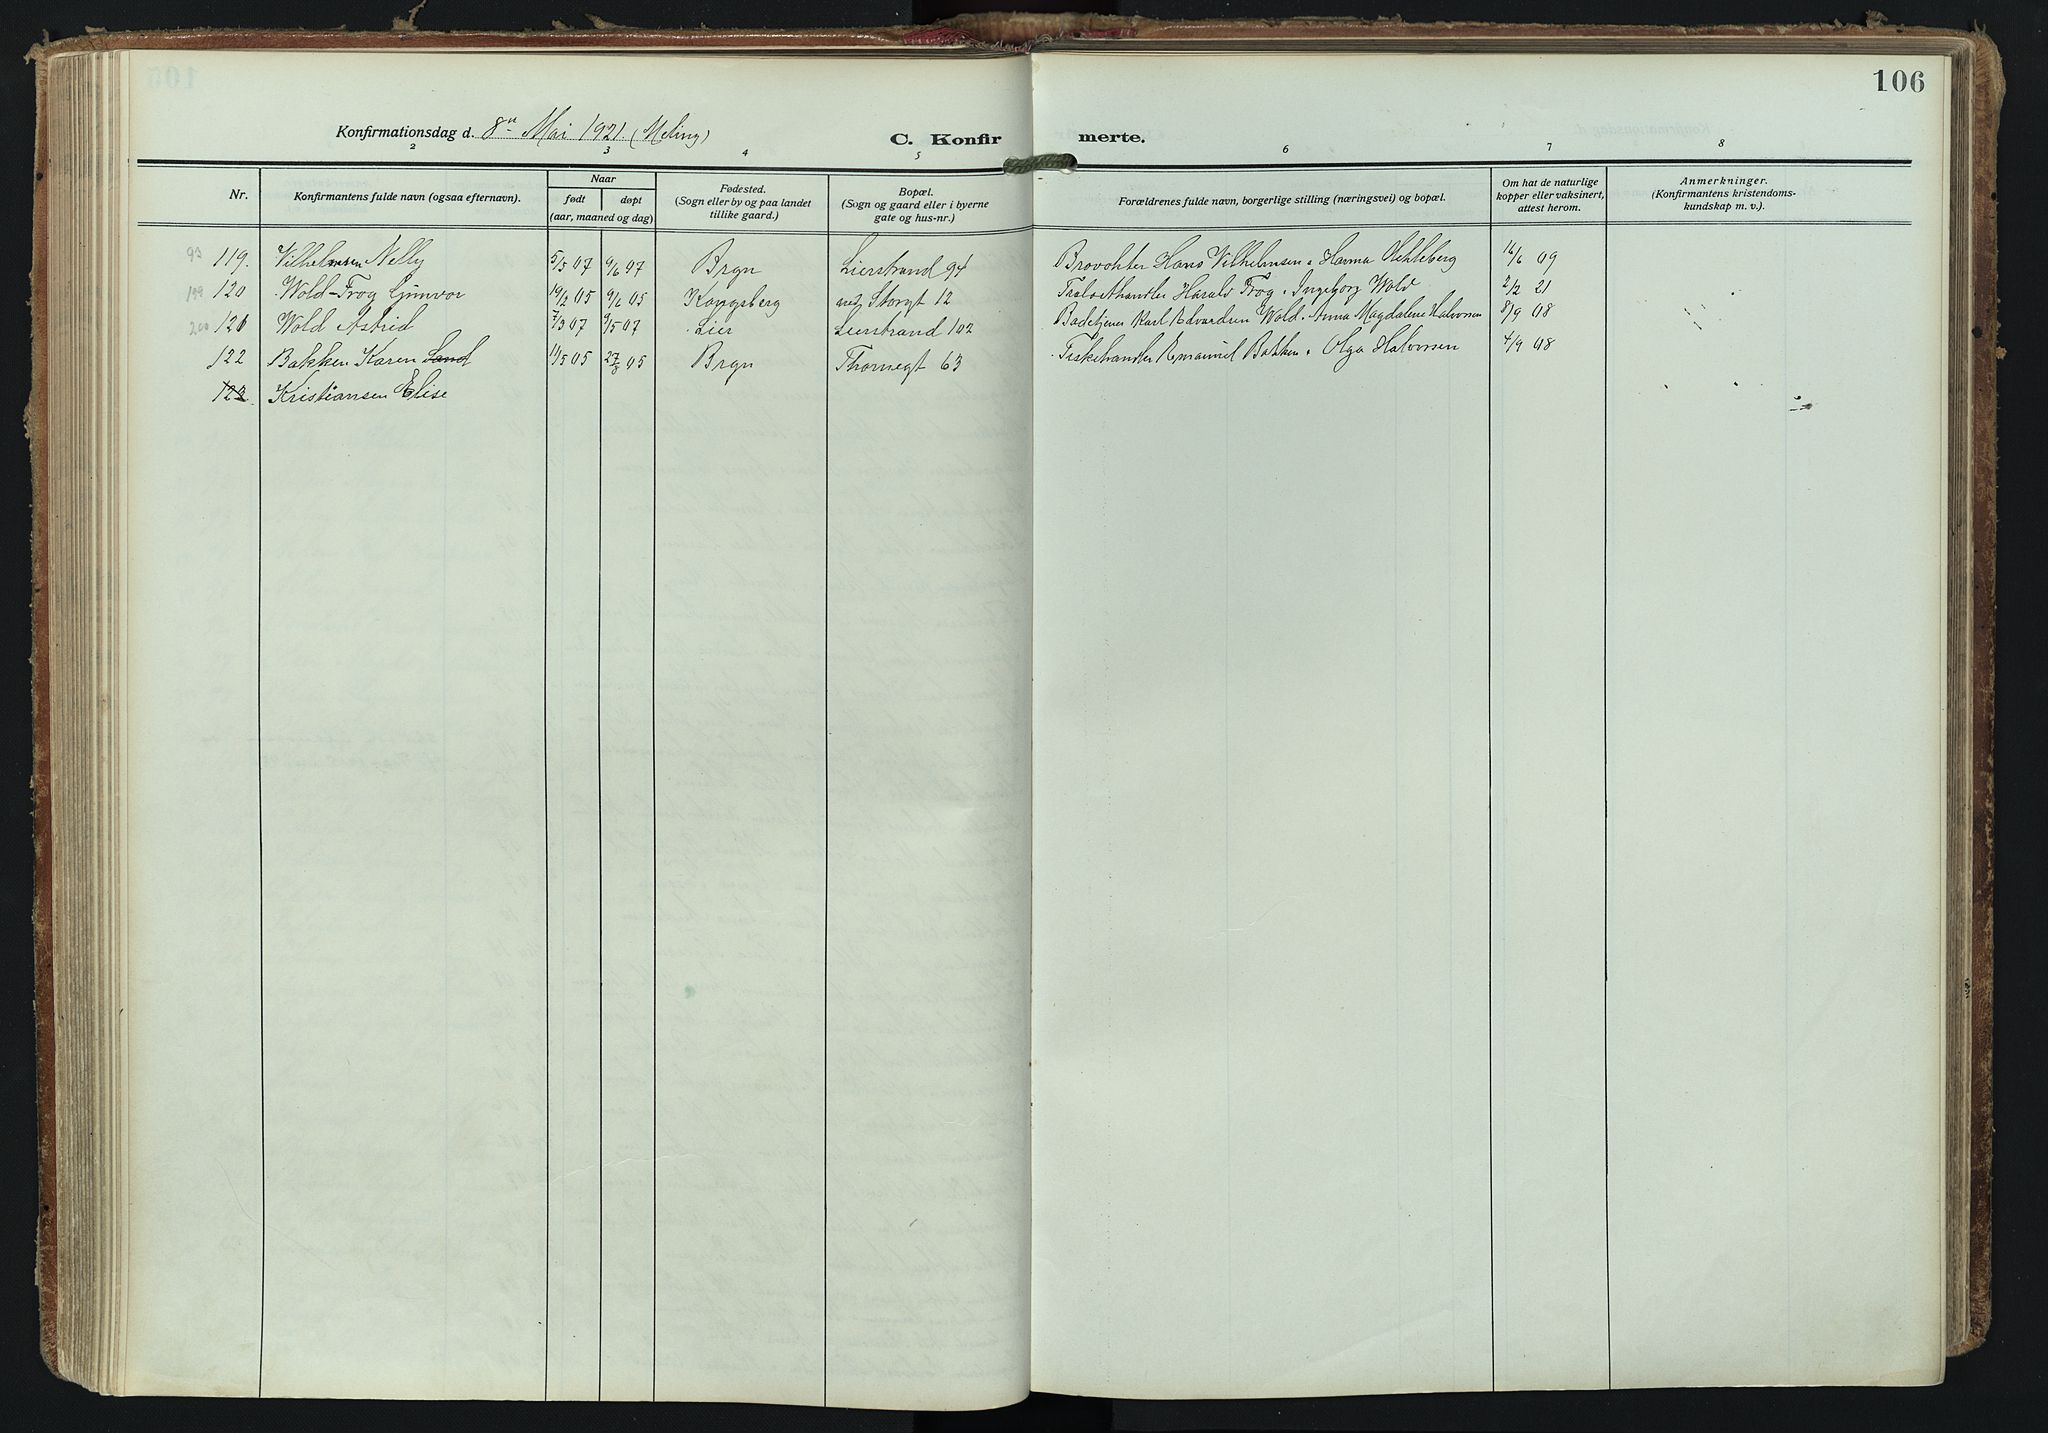 106
Konfirmationsdag d. 8de Mai 1921. (Meling) C. Konfir merte.
2 3 4 5 6 7 8
Nr. Konfirmantens fulde navn (ogsaa efternavn). Naar født døpt (aar, maaned og dag) Fødested. (Sogn eller by og paa landet tillike gaard.) Bopæl. (Sogn og gaard eller i byerne gate og hus-nr.) Forældrenes fulde navn, borgerlige stilling (næringsvei) og bopæl. Om hat de naturlige kopper eller vaksinert, attest herom. Anmerkninger. (Konfirmantens kristendoms-kundskap m. v.).
93 119. Vilhelmsen Nelly 5/5 07 9/6 07 Brgn Lierstrand 94 Brovokter Hans Vilhelmsen Hanna 16/6 09
199 120 Wold-Frog Gunvor 19/2 05 9/6 05 Kongsberg ned. Storgt 12 Harald Frog, Ingeborg Wold 2/2 21
200 121 Wold Astrid 7/3 07 9/5 07 Lier Lierstrand 102 Badetjener Karl Edvardsen Wold. Anna Magdalene Halvorsen 8/9 08
122 Bakken Karen 11/5 05 27/8 05 Brgn Thornegt 63 Fiskehandler Emanuel Bakken Olga Halvorsen 4/9 08
123. Kristiansen Elise